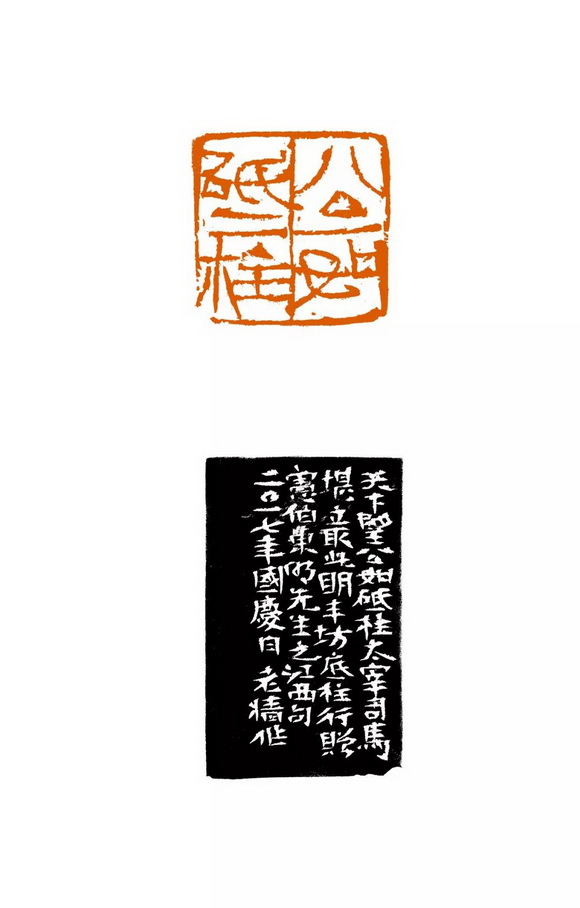 公如
砥柱
天下望公如砥柱太宰司馬
堪立最此明丰坊底柱行贈
憲伯先生之江西句
二〇一七年國慶日 老牆作